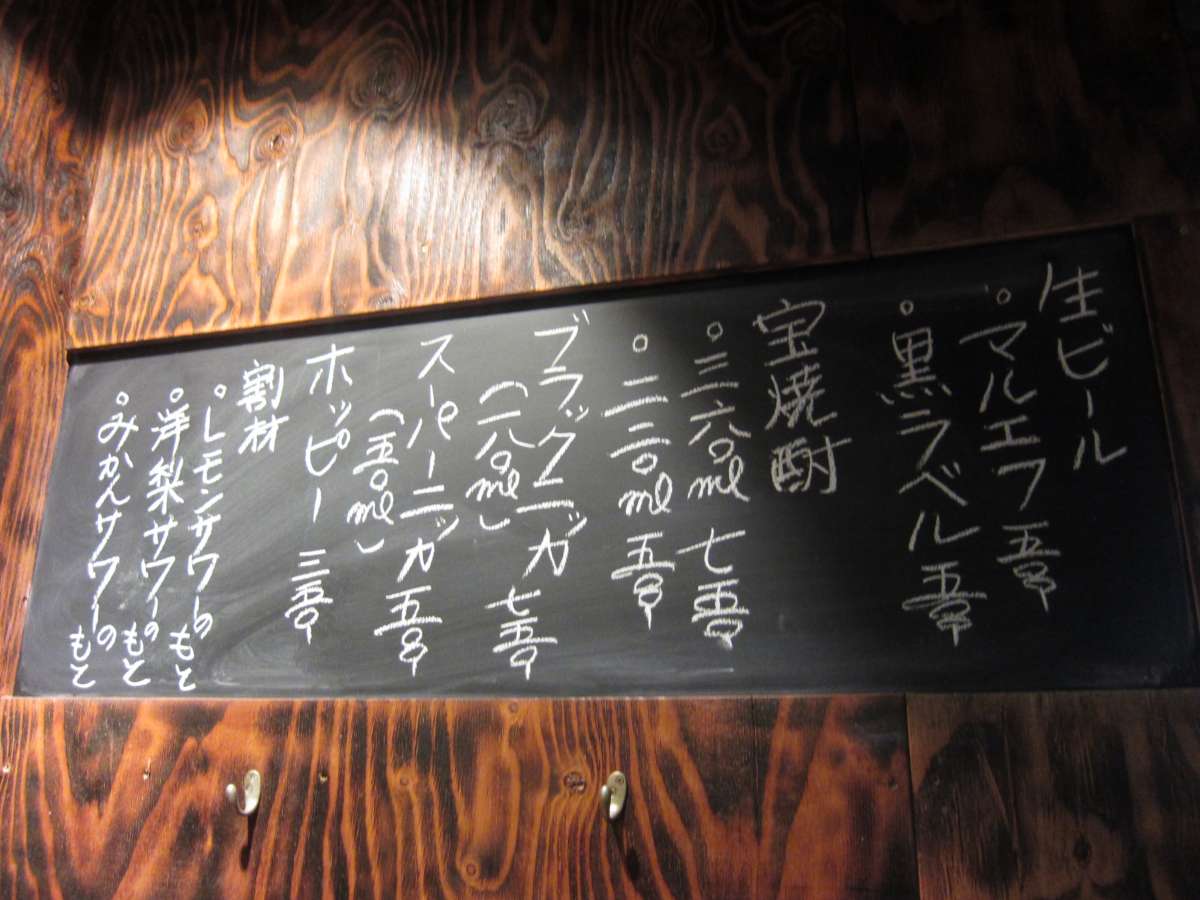 生ビール
。マルエフ 五〇〇
。黒ラベル 五〇〇
宝焼酎
。三六〇ml 七五〇
。二二〇ml 五〇〇
ブラックニッカ 七五〇
(一八〇ml)
スーパーニッカ 五〇〇
(五〇ml)
ホッピー 三五〇
割材
。レモンサワーのもと
。洋梨サワーのもと
。みかんサワーのもと